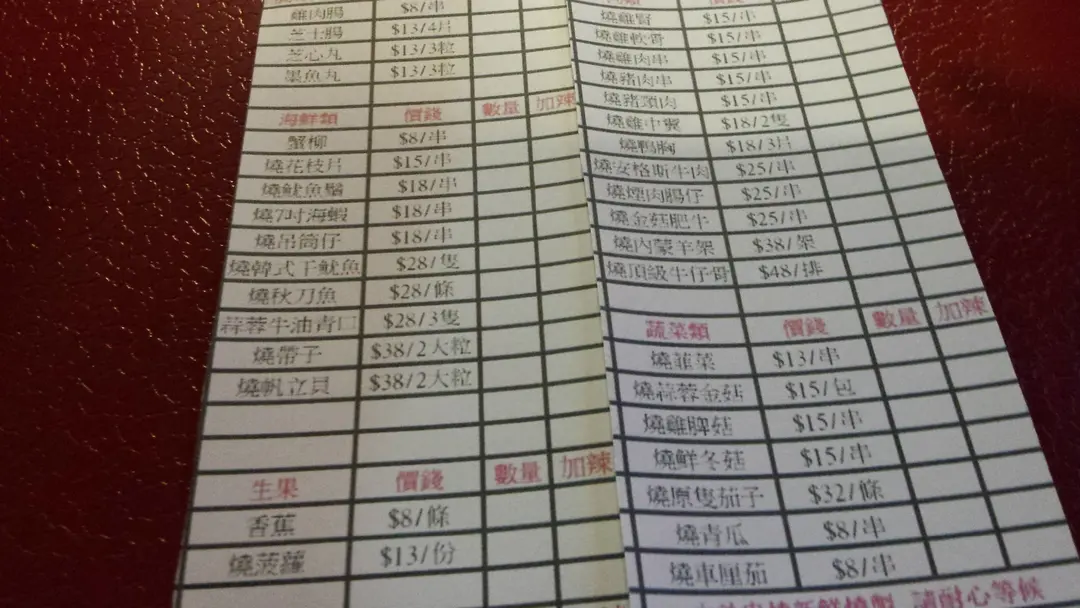 雞肉腸 $8/串
芝士腸 $13/4片
芝心丸 $13/3粒
墨魚丸 $13/3粒
海鮮類 價錢 數量 加辣
蟹柳 $8/串
燒花枝片 $15/串
燒魷魚鬚 $18/串
燒7吋海蝦 $18/串
燒吊筒仔 $18/串
燒韓式干魷魚 $28/隻
燒秋刀魚 $28/條
蒜蓉牛油青口 $28/3隻
燒帶子 $38/2大粒
燒帆立貝 $38/2大粒
生果 價錢 數量 加辣
香蕉 $8/條
燒菠蘿 $13/份
燒雞腎 $15/串
燒雞軟骨 $15/串
燒雞肉串 $15/串
燒豬肉串 $15/串
燒豬頸肉 $15/串
燒雞中翼 $18/2隻
燒鴨胸 $18/3片
燒安格斯牛肉 $25/串
燒煙肉腸仔 $25/串
燒金菇肥牛 $25/串
燒內蒙羊架 $38/架
燒頂級牛仔骨 $48/排
蔬菜類 價錢 數量 加辣
燒韮菜 $13/串
燒蒜蓉金菇 $15/包
燒雞脾菇 $15/串
燒鮮冬菇 $15/串
燒原隻茄子 $32/條
燒青瓜 $8/串
燒車厘茄 $8/串
請耐心等候